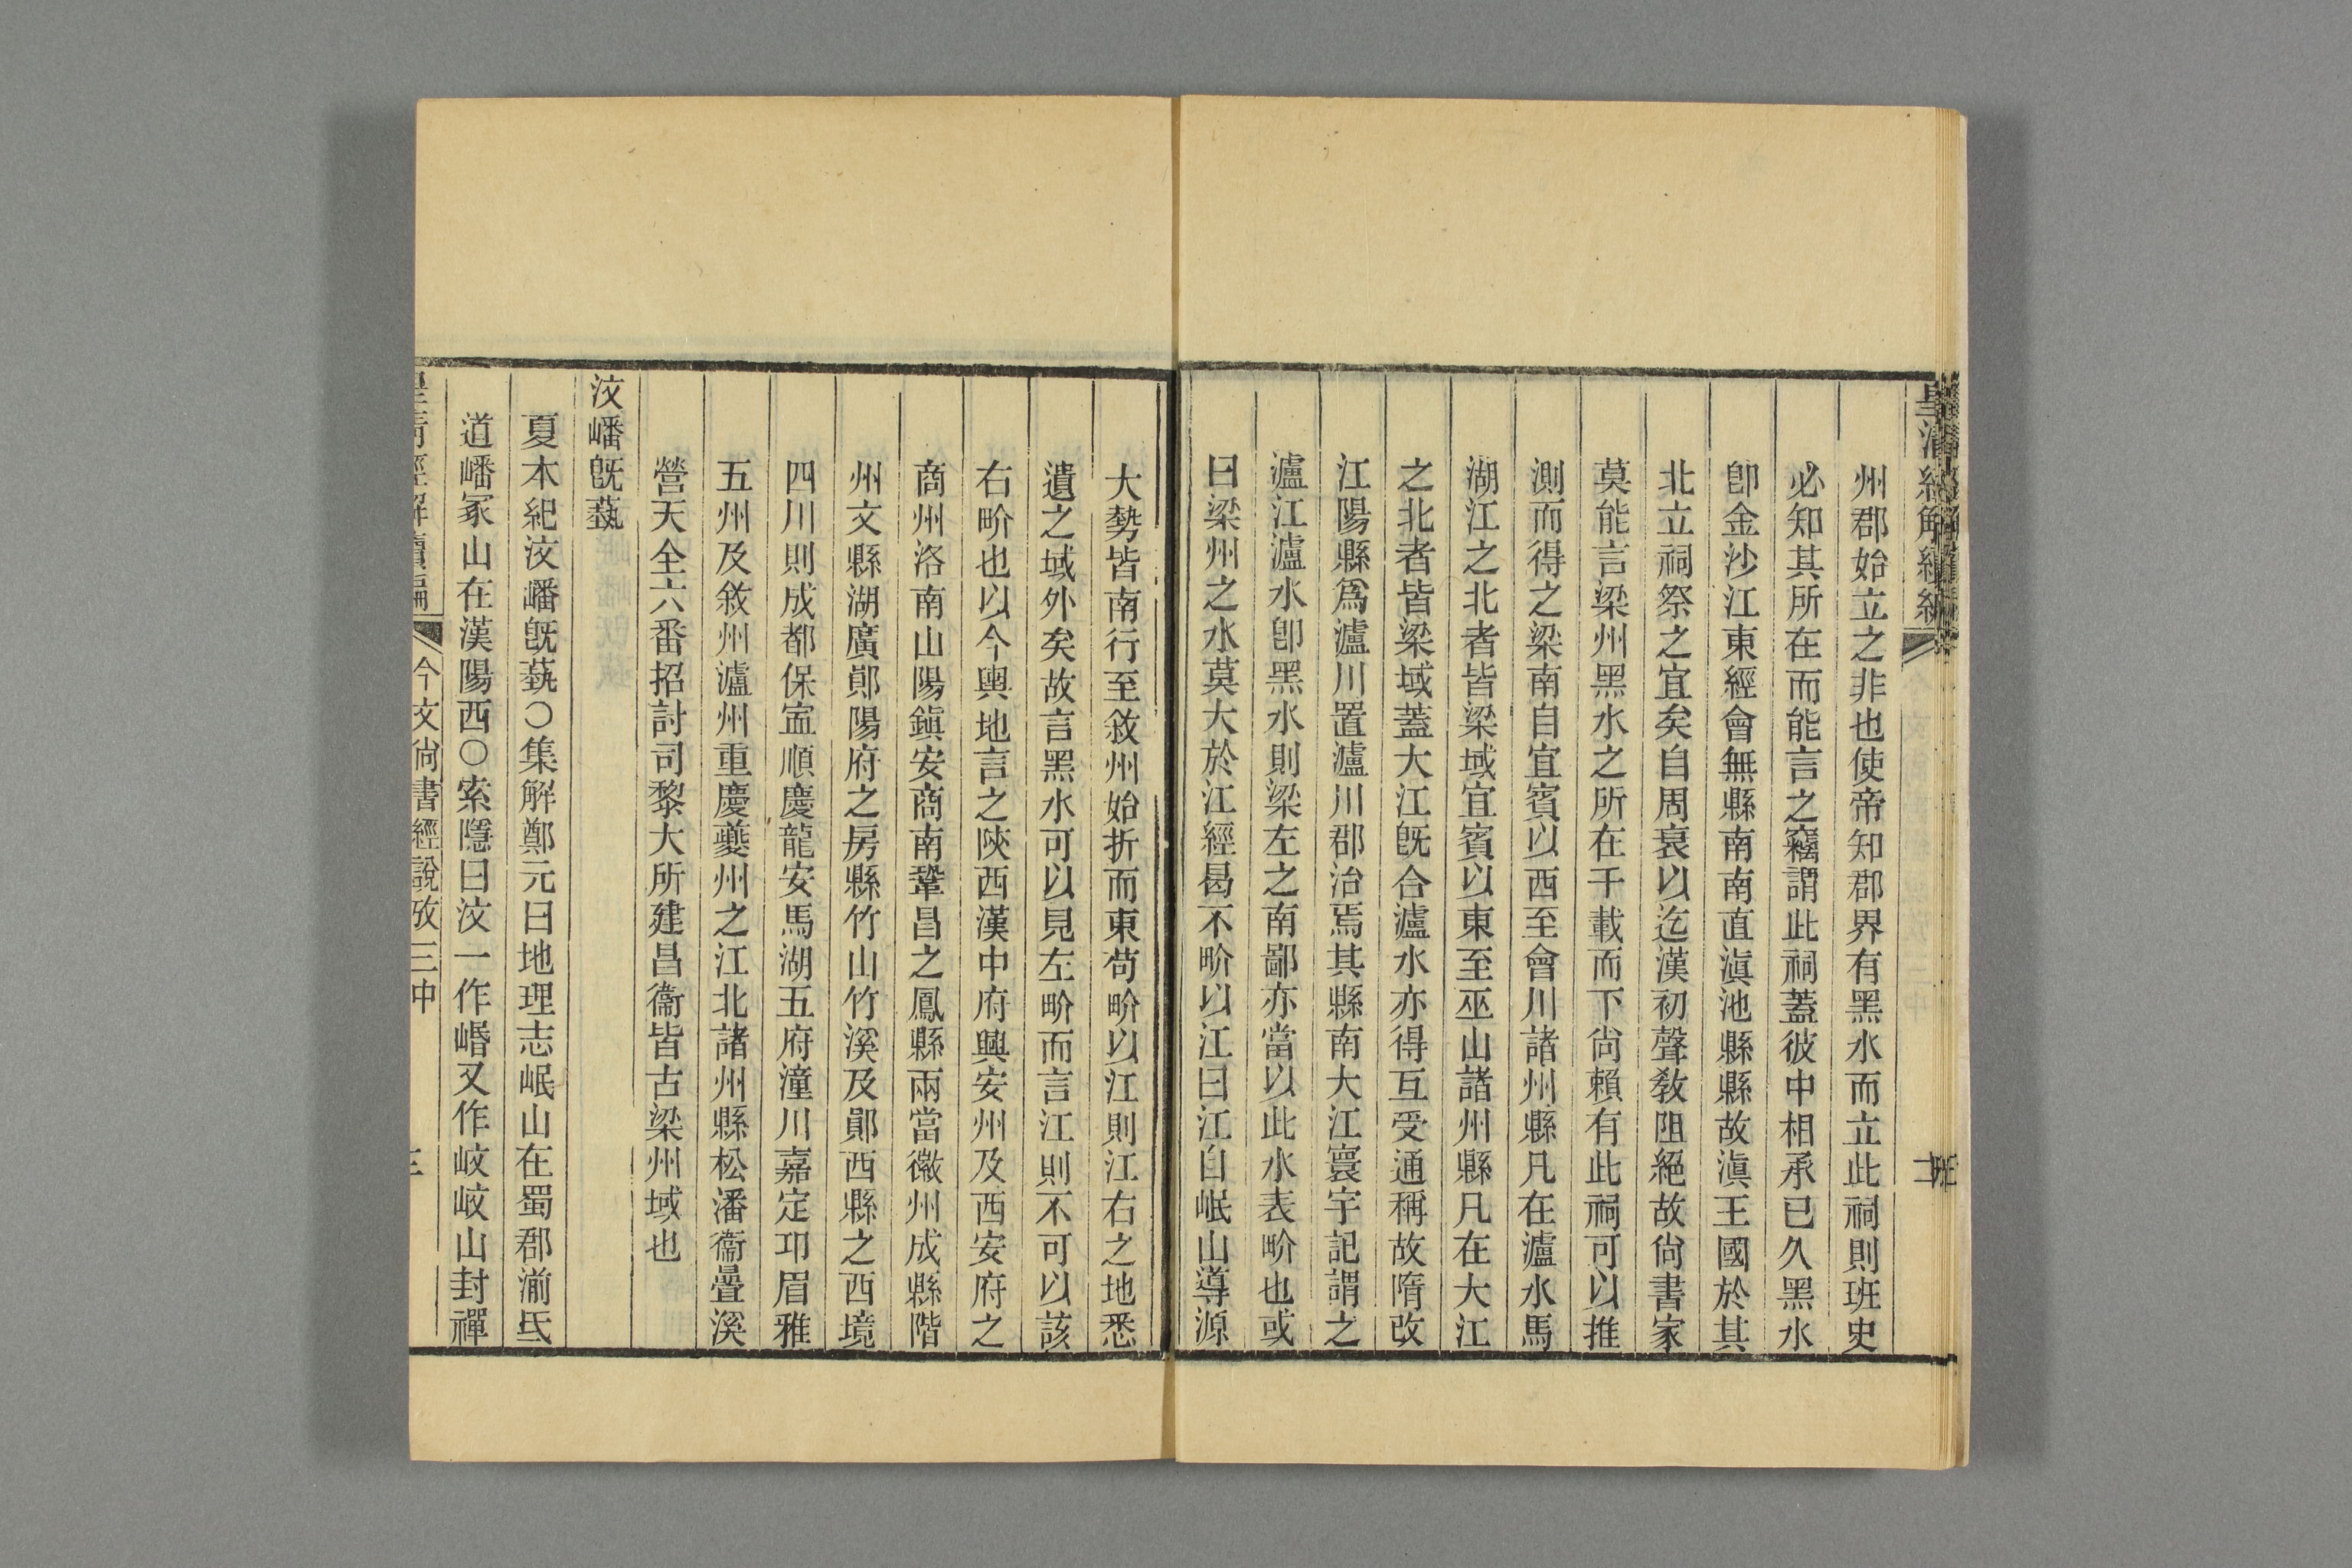 皇清經解續編
州郡始立之非也使帝知郡界有黑水而立此祠則班史
必知其所在而能言之竊謂此祠蓋彼中相承已久黑水
卽金沙江東經會無縣南南直滇池縣縣故滇王國於其
北立祠祭之宜矣自周衰以迄漢初聲敎阻絕故尙書家
莫能言梁州黑水之所在千載而下尙賴有此祠可以推
測而得之梁南自宜賓以西至會川諸州縣凡在瀘水馬
湖江之北者皆梁域宜賓以東至巫山諸州縣凡在大江
之北者皆梁域蓋大江旣合瀘水亦得互受通稱故隋改
江陽縣爲瀘川置瀘川郡治焉其縣南大江寰宇記謂之
瀘江瀘水卽黑水則梁左之南鄙亦當以此水表畍也或
曰梁州之水莫大於江經曷不畍以江曰江自岷山導源
大勢皆南行至敘州始折而東苟畍以江則江右之地悉
遺之域外矣故言黑水可以見左畍而言江則不可以該
右畍也以今輿地言之陝西漢中府興安州及西安府之
商州洛南山陽鎭安商南鞏昌之鳳縣兩當徽州成縣階
州文縣湖廣鄖陽府之房縣竹山竹溪及鄖西縣之西境
四川則成都保寍順慶龍安馬湖五府潼川嘉定邛眉雅
五州及敘州瀘州重慶夔州之江北諸州縣松潘衞疊溪
營天全六番招討司黎大所建昌衞皆古梁州域也
汶嶓旣蓺
夏本紀汶嶓旣蓺○集解鄭元曰地理志岷山在蜀郡湔氐
道嶓冢山在漢陽西○索隱曰汶一作㟭又作岐岐山封禪
皇淸經解續編
今文尙書經說攷三中